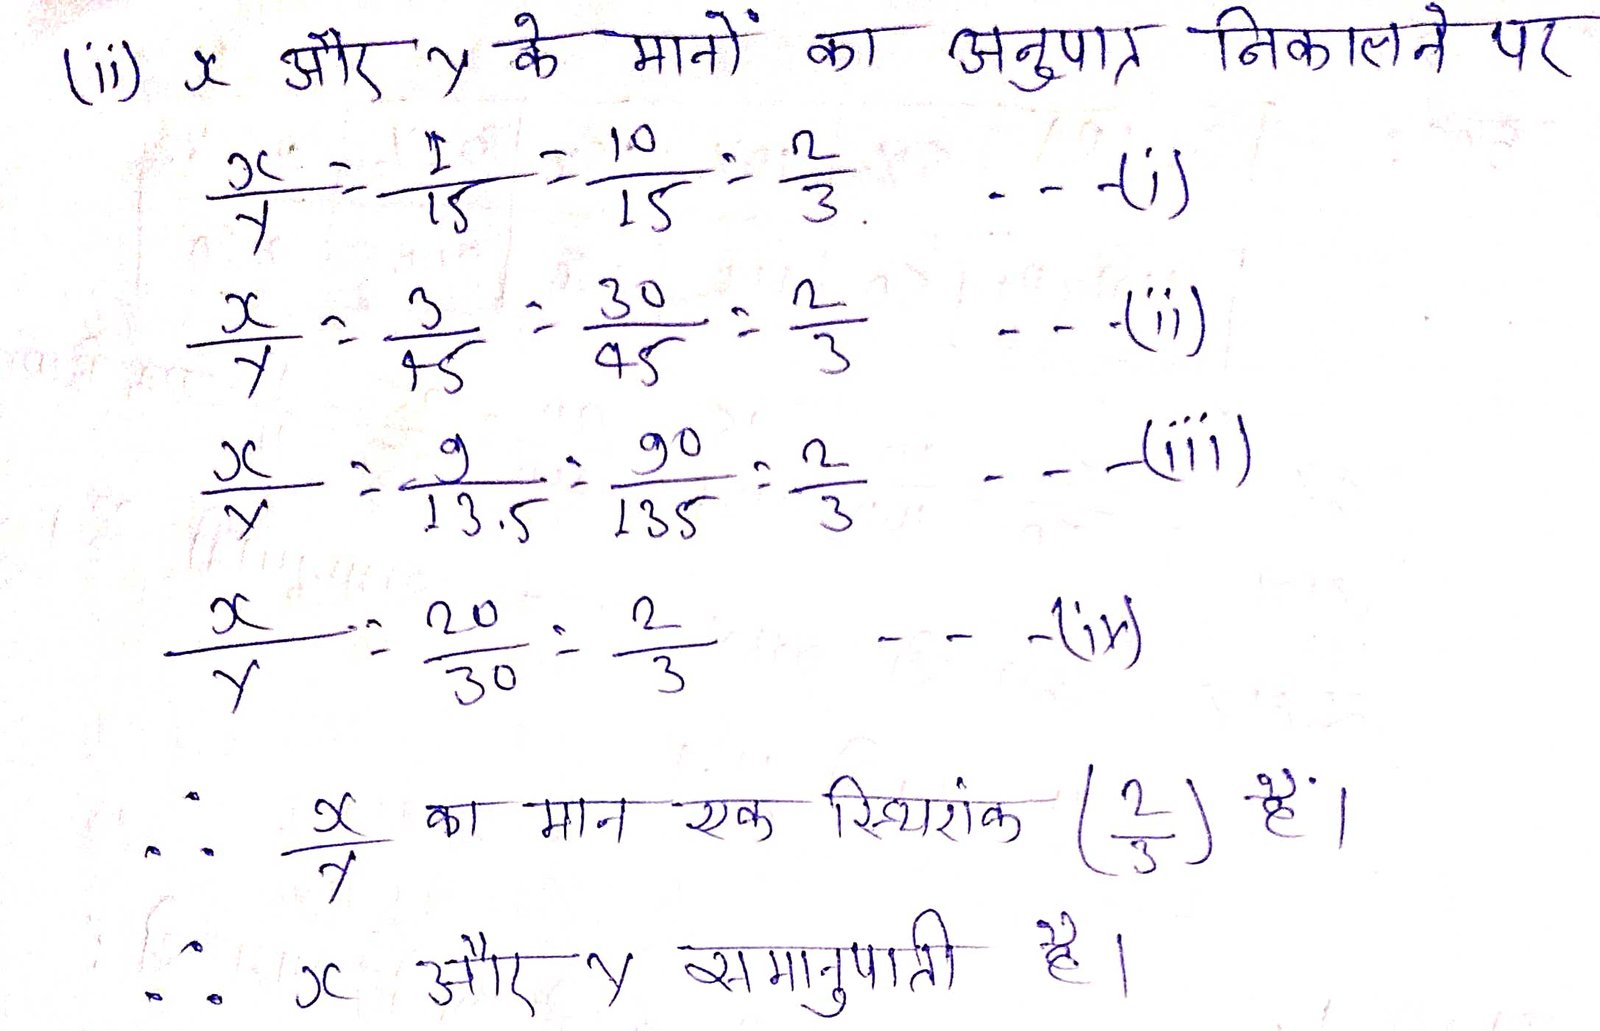 (ii) x और y के मानों का अनुपात निकालने पर
x/y = 1/15 = 10/15 = 2/3 - - -(i)
x/y = 3/45 = 30/45 = 2/3 - - -(ii)
x/y = 9/13.5 = 90/135 = 2/3 - - -(iii)
x/y = 20/30 = 2/3 - - -(iv)
∴ x/y का मान एक स्थिरांक (2/3) हैं।
∴ x और y समानुपाती है।